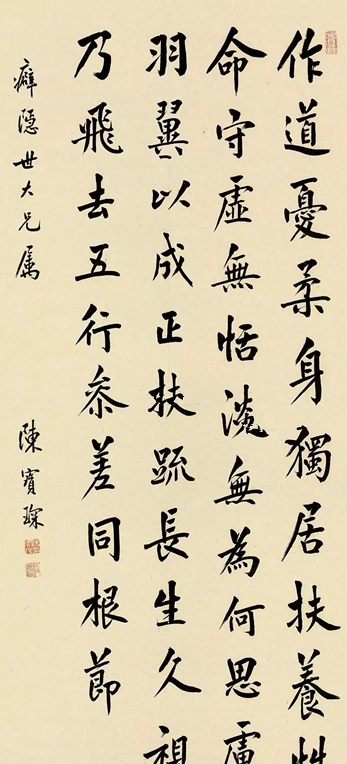 作道憂柔身獨居扶養性
命守虛無恬淡無為何思慮
羽翼以成正扶疏長生久視
乃飛去五行參差同根節
癖隱世大兄属
陳寶琛